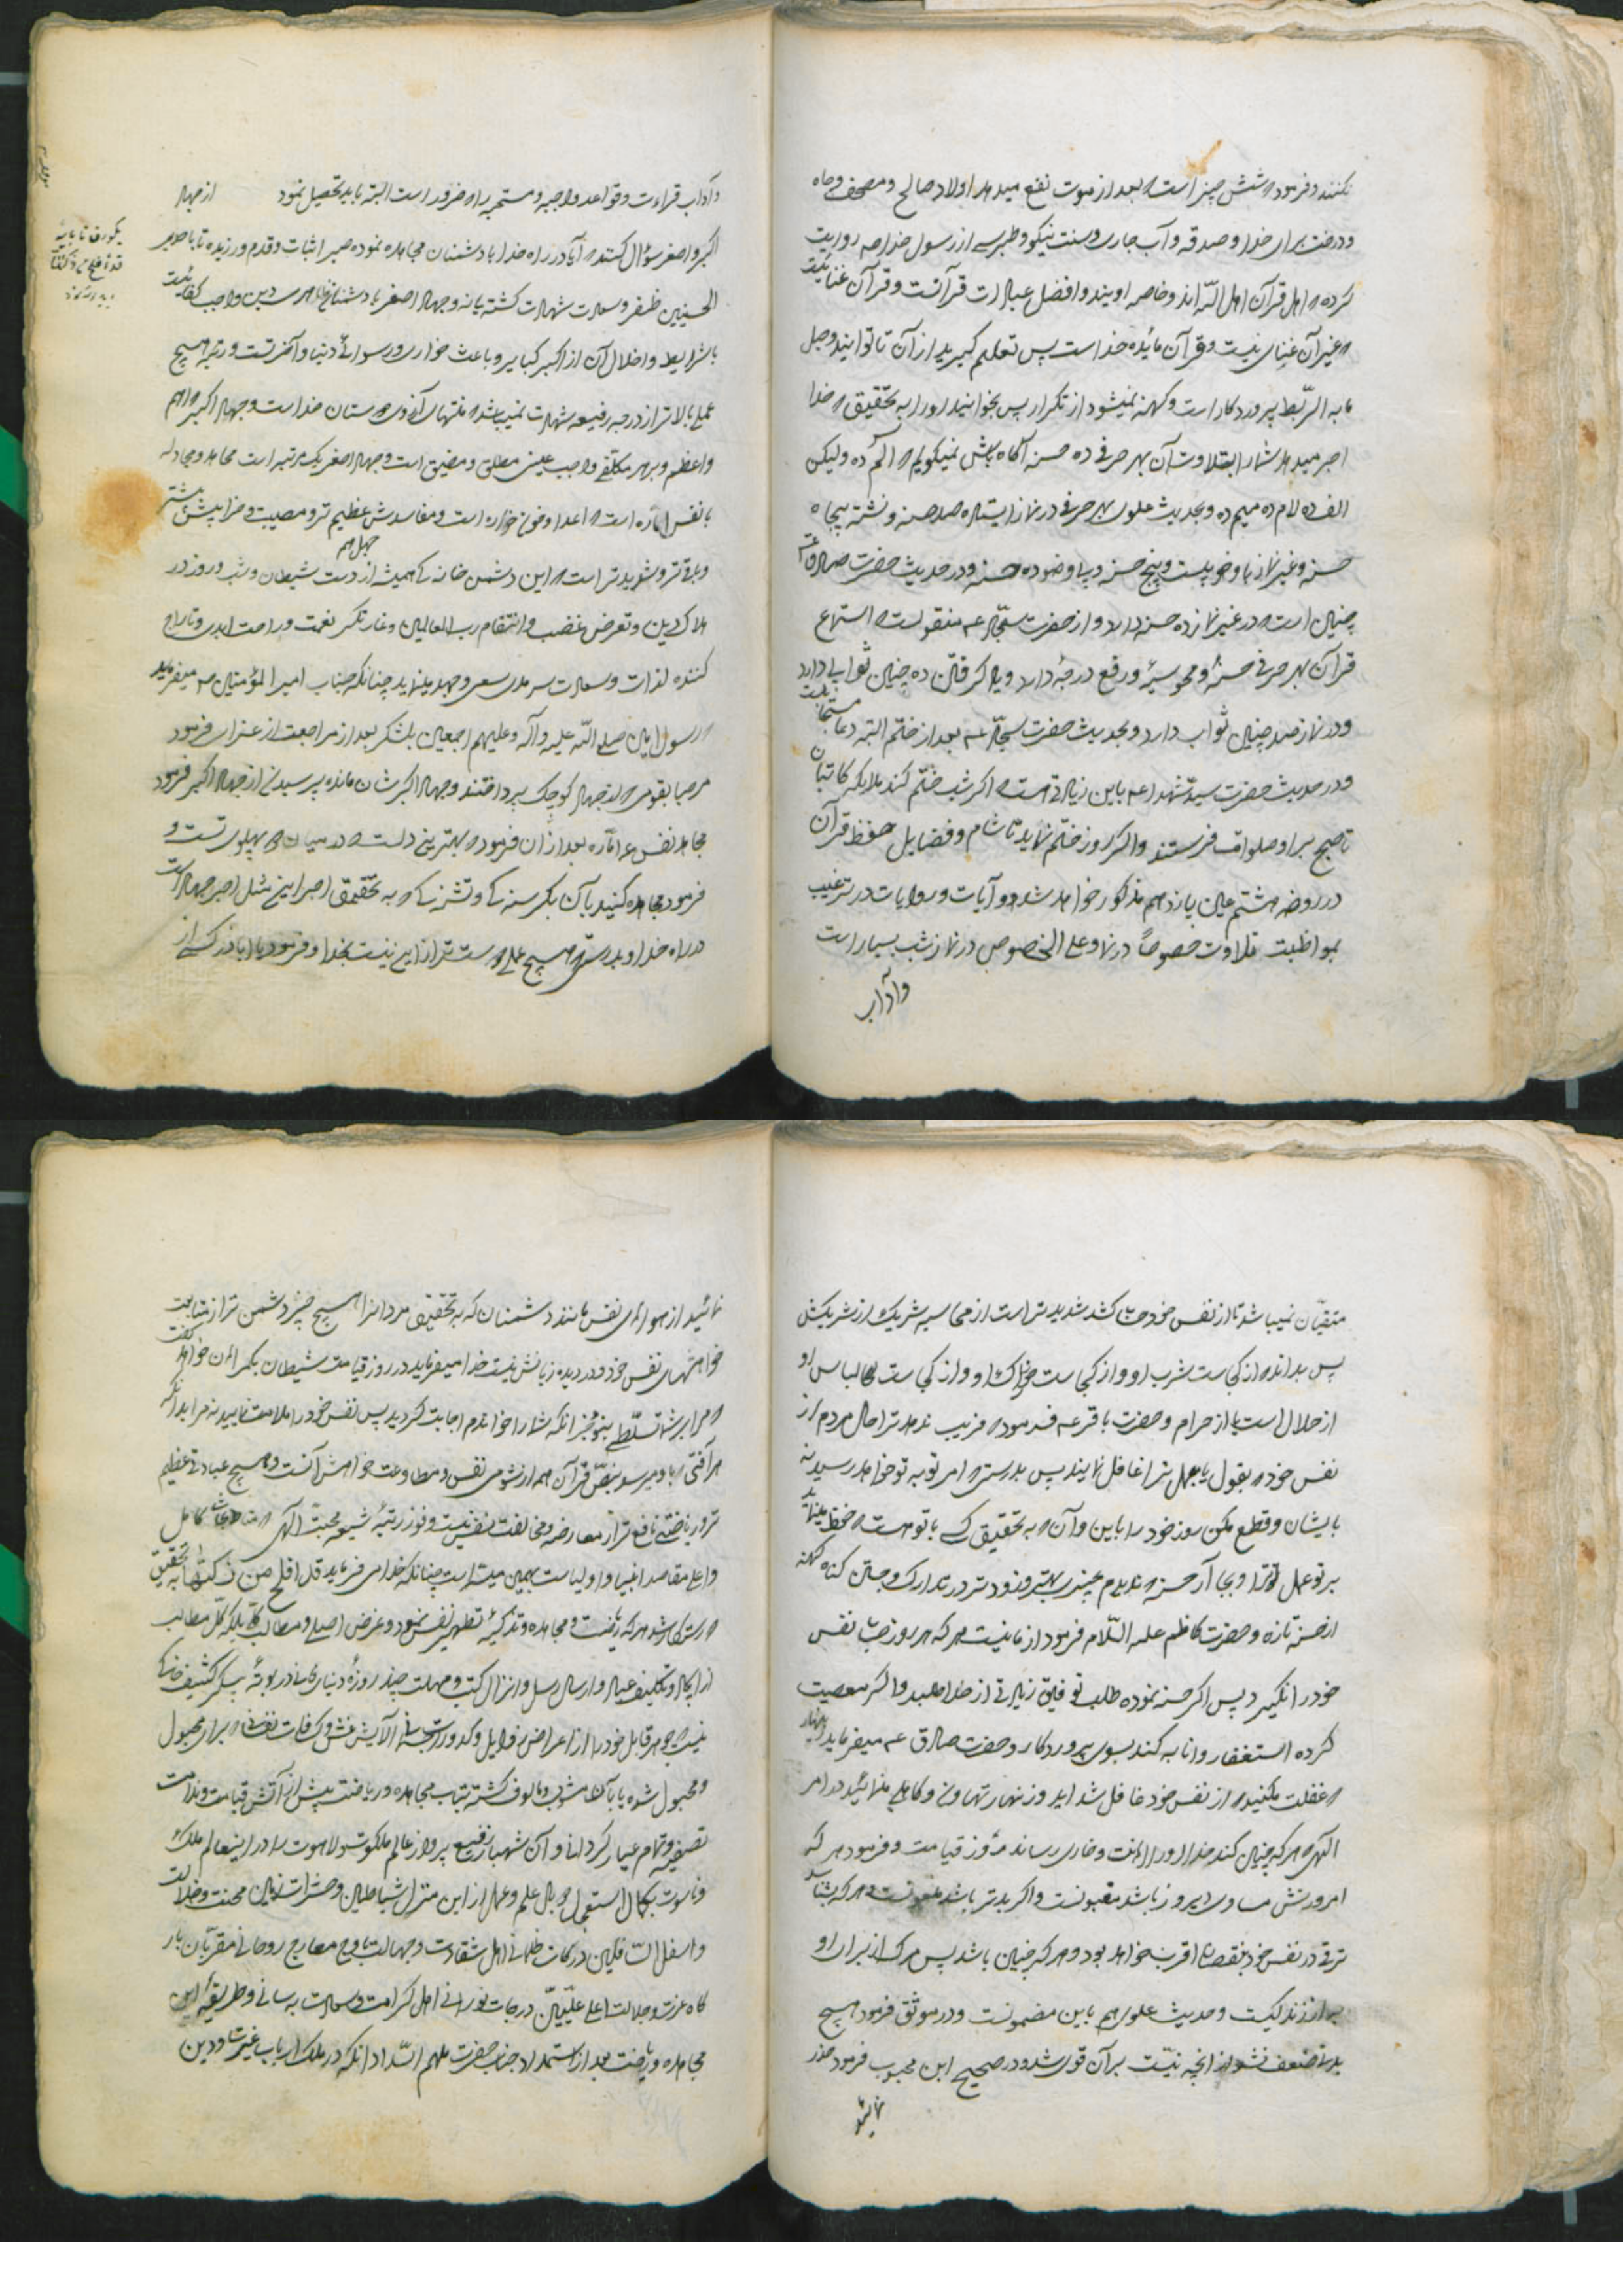 نکنند و فرمود که شش چیز است که بعد از موت نفع میدهد اولاد صالح و مصحف و چاه
و درخت برای خدا و صدقه و آب جاری و سنت نیکو و طبرسی از رسول خدا صه روایت
کرده که اهل قرآن اهل الله اند و خاصه اویند و افضل عبادات قرآنست و قرآن غنائیست
که غیر آن غنای نیست و قرآن مائده خداست پس تعلیم گیرید از آن تا توانید و حبل
پروردکار است و کهنه نمیشود از تکرار پس بخوانید او را به تحقیق که خدا
اجر میدهد شما را بتلاوت آن بهر حرفی ده حسنه آکاه باش نمیکویم که الم ده ولیکن
الف ده لام ده میم ده و بحدیث علوی بهر حرفی در نماز ایستاده صد حسنه و نشسته پنجاه
حسنه و غیر نماز با وضو بیست و پنج حسنه و بیوضو ده حسنه و در حدیث حضرت صادق عه
چنین است که در غیر نماز ده حسنه دارد و از حضرت سجاد عه منقولست که استماع
قرآن بهر حرفی حسنه و محو سیئه و رفع درجه دارد و یاد کرفتن ده چنین ثواب دارد
و در نماز صد چنین ثواب دارد و بحدیث حضرت سجاد عه بعد از ختم البته دعا مستجابست
و در حدیث حضرت سید شهدا عه باین زیادتی است که اکر شب ختم کند ملایکه کاتبان
تا صبح بر او صلوات فرستند و اکر روز ختم نماید تا شام و فضایل حفظ قرآن
در روضه هشتم عین یازدهم مذکور خواهد شد و آیات و روایات در ترغیب
بمواظبت تلاوت خصوصاً در نماز و علی الخصوص در نماز شب بسیار است
و آداب
و آداب قراءت و قواعد واجبه و مستحبه را که ضرور است البته باید تحصیل نمود از جهاد
اکبر و اصغر سؤال کنند که آیا در راه خدا با دشمنان مجاهده نموده صبر اثبات و قدم ورزیده تا باحدی
الحسنیین ظفر و سعادت شهادت کشته یا نه و جهاد اصغر با دشمنان ظاهری دین واجب کفائیست
با شرایط و اخلال آن از اکبر کبایر و باعث خواری و رسوائی دنیا و آخرتست و رتبه هیچ
عملی بالاتر از درجه رفیعه شهادت نمیباشد که منتهای آرزوی دوستان خداست و جهاد اکبر که اهم
و اعظم و بر هر مکلفی واجب عینی مطلق و مضیق است و جهاد اصغر یک مرتبه است مجاهده و مجادله
با نفس اماره است که اعدا و خونخواره است و مفاسدش عظیم تر و مصیبت و خرابیش بیشتر
و باقی تر و شدیدتر است که این دشمن خانه کی همیشه از دست شیطان و شب و روز در
هلاک دین و تعرض غضب و انتقام رب العالمین و غارتگر نعمت و راحت ابدی و تاراج
کننده لذات و سعادت سرمدی سعی و جهد مینماید چنانکه جناب امیر المؤمنین ع میفرماید
که رسول امین صلی الله علیه و آله و علیهم اجمعین بلشکر بعد از مراجعت از غزای فرمود
مرحبا بقومی که از جهاد کوچک پرداختند و جهاد اکبر شان مانده پرسیدند از جهاد اکبر فرمود
مجاهده نفس اماره بعد از آن فرمود که بهترین دلست که در میان دو پهلوی تست و
فرمود مجاهده کنید با آن بکرسنه کی و تشنه کی که به تحقیق اجر این مثل اجر جهاد است
در راه خدا و بدرستی که هیچ عملی دوست تر از این نیست بخدا و فرمود یا اباذر کسی از
متقیان نمیباشد تا از نفس خود حساب کشد شدیدتر است از محاسبه شریک از شریکش
پس بداند که از کجاست شرب او و از کجاست خوراک او و از کجاست لباس او
از حلال است یا از حرام و حضرت باقر عه فرمود که فریب ندهد ترا حال مردم از
نفس خود که بقول یا بعمل ترا غافل نمایند پس بدرستی که امر تو به تو خواهد رسید نه
بایشان و قطع مکن روز خود را باین و آن که به تحقیق کسی با تو هست که حفظ مینماید
بر تو عمل ترا و بجا آر حسنه که ندیدم چیزی بهتر و زودتر در تدارک و جستن گناه کهنه
از حسنه تازه و حضرت کاظم علیه السلام فرمود از ما نیست هر که هر روز حساب نفس
خود را نگیرد پس اکر حسنه نموده طلب توفیق زیادتی از خدا طلبد و اکر معصیت
کرده استغفار و انابه کند بسوی پروردکار و حضرت صادق عه میفرماید زنهار
که غفلت مکنید که از نفس خود غافل شده اید و زنهار تهاون و کاهلی منمائید در امر
الهی که هر که چنین کند خدا او را اهانت و خاری رساند در روز قیامت و فرمود هر که
امروزش مساوی دیروز باشد مغبونست و اکر بدتر باشد ملعونست و هر که نشناسد
ترقی در نفس خود بنقصان اقرب خواهد بود و هر که چنین باشد پس مرک از برای او
به از زندکیست و حدیث علوی هم باین مضمونست و در موثق فرمود هیچ
بدنی ضعیف نشد از انچه نیّت بر آن قوی شد و در صحیح ابن محبوب فرمود حذر
نمائید
نمائید از هواهای نفس مانند دشمنان که به تحقیق مردانرا هیچ چیز دشمن تر از متابعت
خواهشهای نفس خود و درویده زبانش نیست خدا میفرماید در روز قیامت شیطان بکمراهان خواهد گفت
که مرا بر شما تسلطی نبود بجز انکه شما را خواندم اجابت کردید پس نفس خود را ملامت نمایید نه مرا بدانکه
هر آفتی که باو میرسد بنص قرآن همه از شومی نفس و مطاوعت خواهش آنست و هیچ عبادت عظیم
تر و ریاضتی نافع تر از معارضه و مخالفت نفس نیست و فوز رتبه شیعه محبت الهی
و اعلی مقاصد انبیا و اولیاست بهمین میسر است چنانکه خدا می فرماید قد افلح من زکیها به تحقیق
که رستکار شد هر که ریاضت و مجاهده و تزکیه و تطهیر نفس نمود و غرض اصلی و مطالب کلی بلکه کل مطالب
از ایجاد و تکلیف عباد و ارسال رسل و انزال کتب و مهلت چند روزه دنیای فانی در بوته پیکر کثیف خاکی
نیست که جوهر قابل خود را از اعراض و کدورات آلایش غش و کثافات نفسانی که برای مجبول
و مجبول شده یا بآن مشوب و مألوف کشته بتاب مجاهده و ریاضت پیش از آتش قیامت و ندامت
تصفیه و تمام عیار کرداند و آن شهباز رفیع پرواز عالم ملکوت و لاهوت را در اینعالم ملک
و ناسوت بکمال استعمال دو بال علم و عمل از این منزل شیاطین و حشرات زمین محنت و ضلالت
و اسفل السافلین درکات ظلمانی اهل شقاوت و جهالت باوج معارج روحانی مقربان بار
کاه عزت و جلالت اعلی علیین درجات نورانی اهل کرامت و سعادت برسانی و طریقه این
مجاهده و ریاضت بعد از استمداد جناب حضرت ملهم السداد انکه در ملک ارباب غیرت و دین